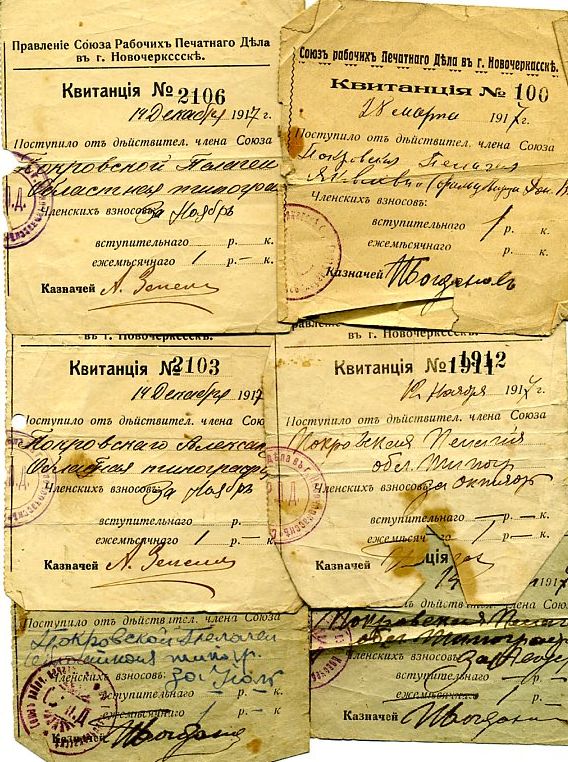 Правленіе Союза Рабочихъ Печатнаго Дѣла
въ г. Новочеркссскѣ.
Квитанція № 2106
14 Декабря 1917 г.
Поступило отъ дѣйствител. члена Союза
Покровской Пелагеи
Областная типогра
Членскихъ взносовъ: За Ноябрь
вступительнаго р. к.
ежемѣсячнаго 1 р. – к.
Казначей
Союзъ рабочихъ Печатнаго Дѣла въ г. Новочеркасскѣ.
Квитанція № 100
28 марта 1917 г.
Поступило отъ дѣйствител. члена Союза
Покровская Пелагия
Членскихъ взносовъ:
вступительнаго 1 р. к.
ежемѣсячнаго р. к.
Казначей Богдановъ
въ г. Новочеркасскѣ.
Квитанція № 2103
14 Декабря 1917
Поступило отъ дѣйствител. члена Союза
Покровскаго Алексан
Областная типографи
Членскихъ взносовъ: За Ноябрь
вступительнаго р. к.
ежемѣсячнаго 1 р. – к.
Казначей
Правленіе
въ г. Новочеркасскѣ.
Квитанція № 1912
12 Ноября 1917 г.
Поступило отъ дѣйствител. члена Союза
Покровская Пелагия
обл. типогр
Членскихъ взносовъ: за октябр
вступительнаго — р. — к.
ежемѣсячнаго 1 р. – к.
Казначей
Поступило отъ дѣйствител. члена Союза
Покровской Пелагеи
типогр.
Членскихъ взносовъ: за Іюль
вступительнаго р. к.
ежемѣсячнаго 1 р. – к.
Казначей
нція
1917
Покровская Пелаг
обл. типограф
Членскихъ взносовъ:
вступительнаго р. к.
ежемѣсячнаго 1 р. к.
Казначей